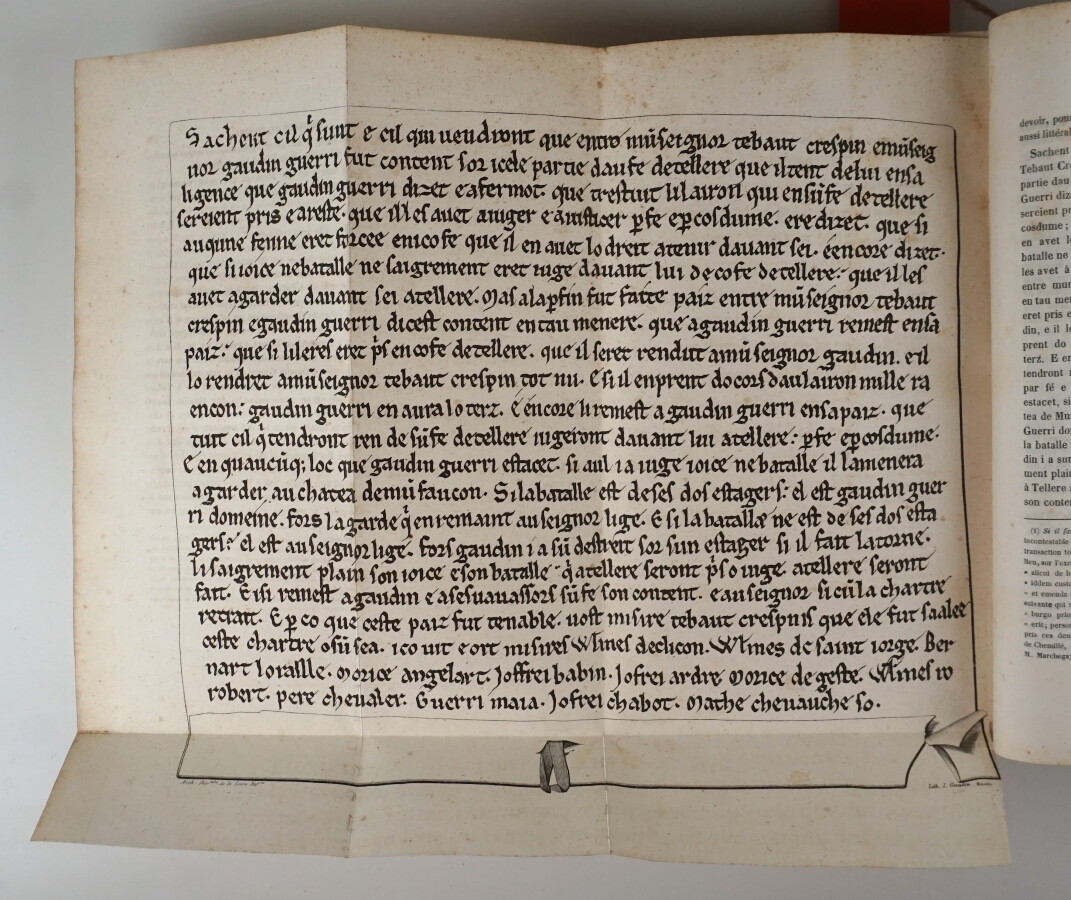 Sachent cil q̄ sunt e cil qui uendront que entre mūseignor tebaut crespin emūseig
nor gaudin guerri fut content sor icele partie daufe detellere que il tent delui ensa
ligence que gaudin guerri dizet e afermot. que trestuit li lairon qui en sūfe detellere
sereient pris e areste. que il les auet aiuger e aiusticer p fe e p cosdume. ere dizet. que si
auqune fenne eret forcee enicofe que il en auet lo dreit atenir dauant sei. e encore dizet.
que si ioice nebatalle ne saigrement eret iuge dauant lui de cofe detellere. que il les
auet agarder dauant sei atellere. Mas alapfin fut faite paiz entre mūseignor tebaut
crespin egaudin guerri dicest content en tau menere. que agaudin guerri remest ensa
paiz. que si li leres eret ps en cofe detellere. que il seret rendut amūseignor gaudin. e il
lo rendret amūseignor tebaut crespin tot nu. E si il enprent do cors daulairon mille ra
encon. gaudin guerri en aura lo terz. E encore li remest a gaudin guerri ensapaiz. que
tuit cil q̄ tendront ren de sūfe detellere iugeront dauant lui atellere. p fe e p cosdume.
E en quaucūq; loc que gaudin guerri estacet. si aul i a iuge ioice nebatalle il lamenera
agarder au chatea demūfaucon. Si labatalle est deses dos estagers. el est gaudin guer
ri domeine. fors lagarde q̄ en remaint au seignor lige. E si la batalle ne est de ses dos esta
gers. el est au seignor lige. fors gaudin i a sū destreit sor sun estager si il fait latorne.
li saigrement plain son ioice e son batalle q̄ atellere seront ps o iuge atellere seront
fait. E isi remest agaudin e asesuauassors sūfe son content. e au seignor si cū la chartre
retrait. E p co que ceste paiz fut tenable. uost misire tebaut crespins que ele fut saalee
ceste chartre o sū sea. ico uit e ort misires Wlmes declicon. Wlmes de saint iorge. Ber
nart loralle. Morice angelart. Joffrei babin. Jofrei ardre Morice de geste. Wlmes ro
robert. pere cheualer. Guerri maia. Jofrei chabot. Mathe cheuauche so.
devoir, pou
aussi littéral
Sachent
Tebaut Cre
partie dau
Guerri diz
sereient pr
cosdume ;
en avet lo
batalle ne
les avet à
entre mun
en tau men
eret pris e
din, e il lo
prent do
terz. E en
tendront r
par fé e
estacet, si
tea de Mu
Guerri do
la batalle
din i a sun
ment plain
à Tellere s
son conten
(1) Si il fa
incontestable
transaction to
lieu, sur l'exe
« alicui de h
« iddem custo
« et emenda
suivante qui
« burgo prio
« erit; person
pris ces deu
de Chemillé,
M. Marchega